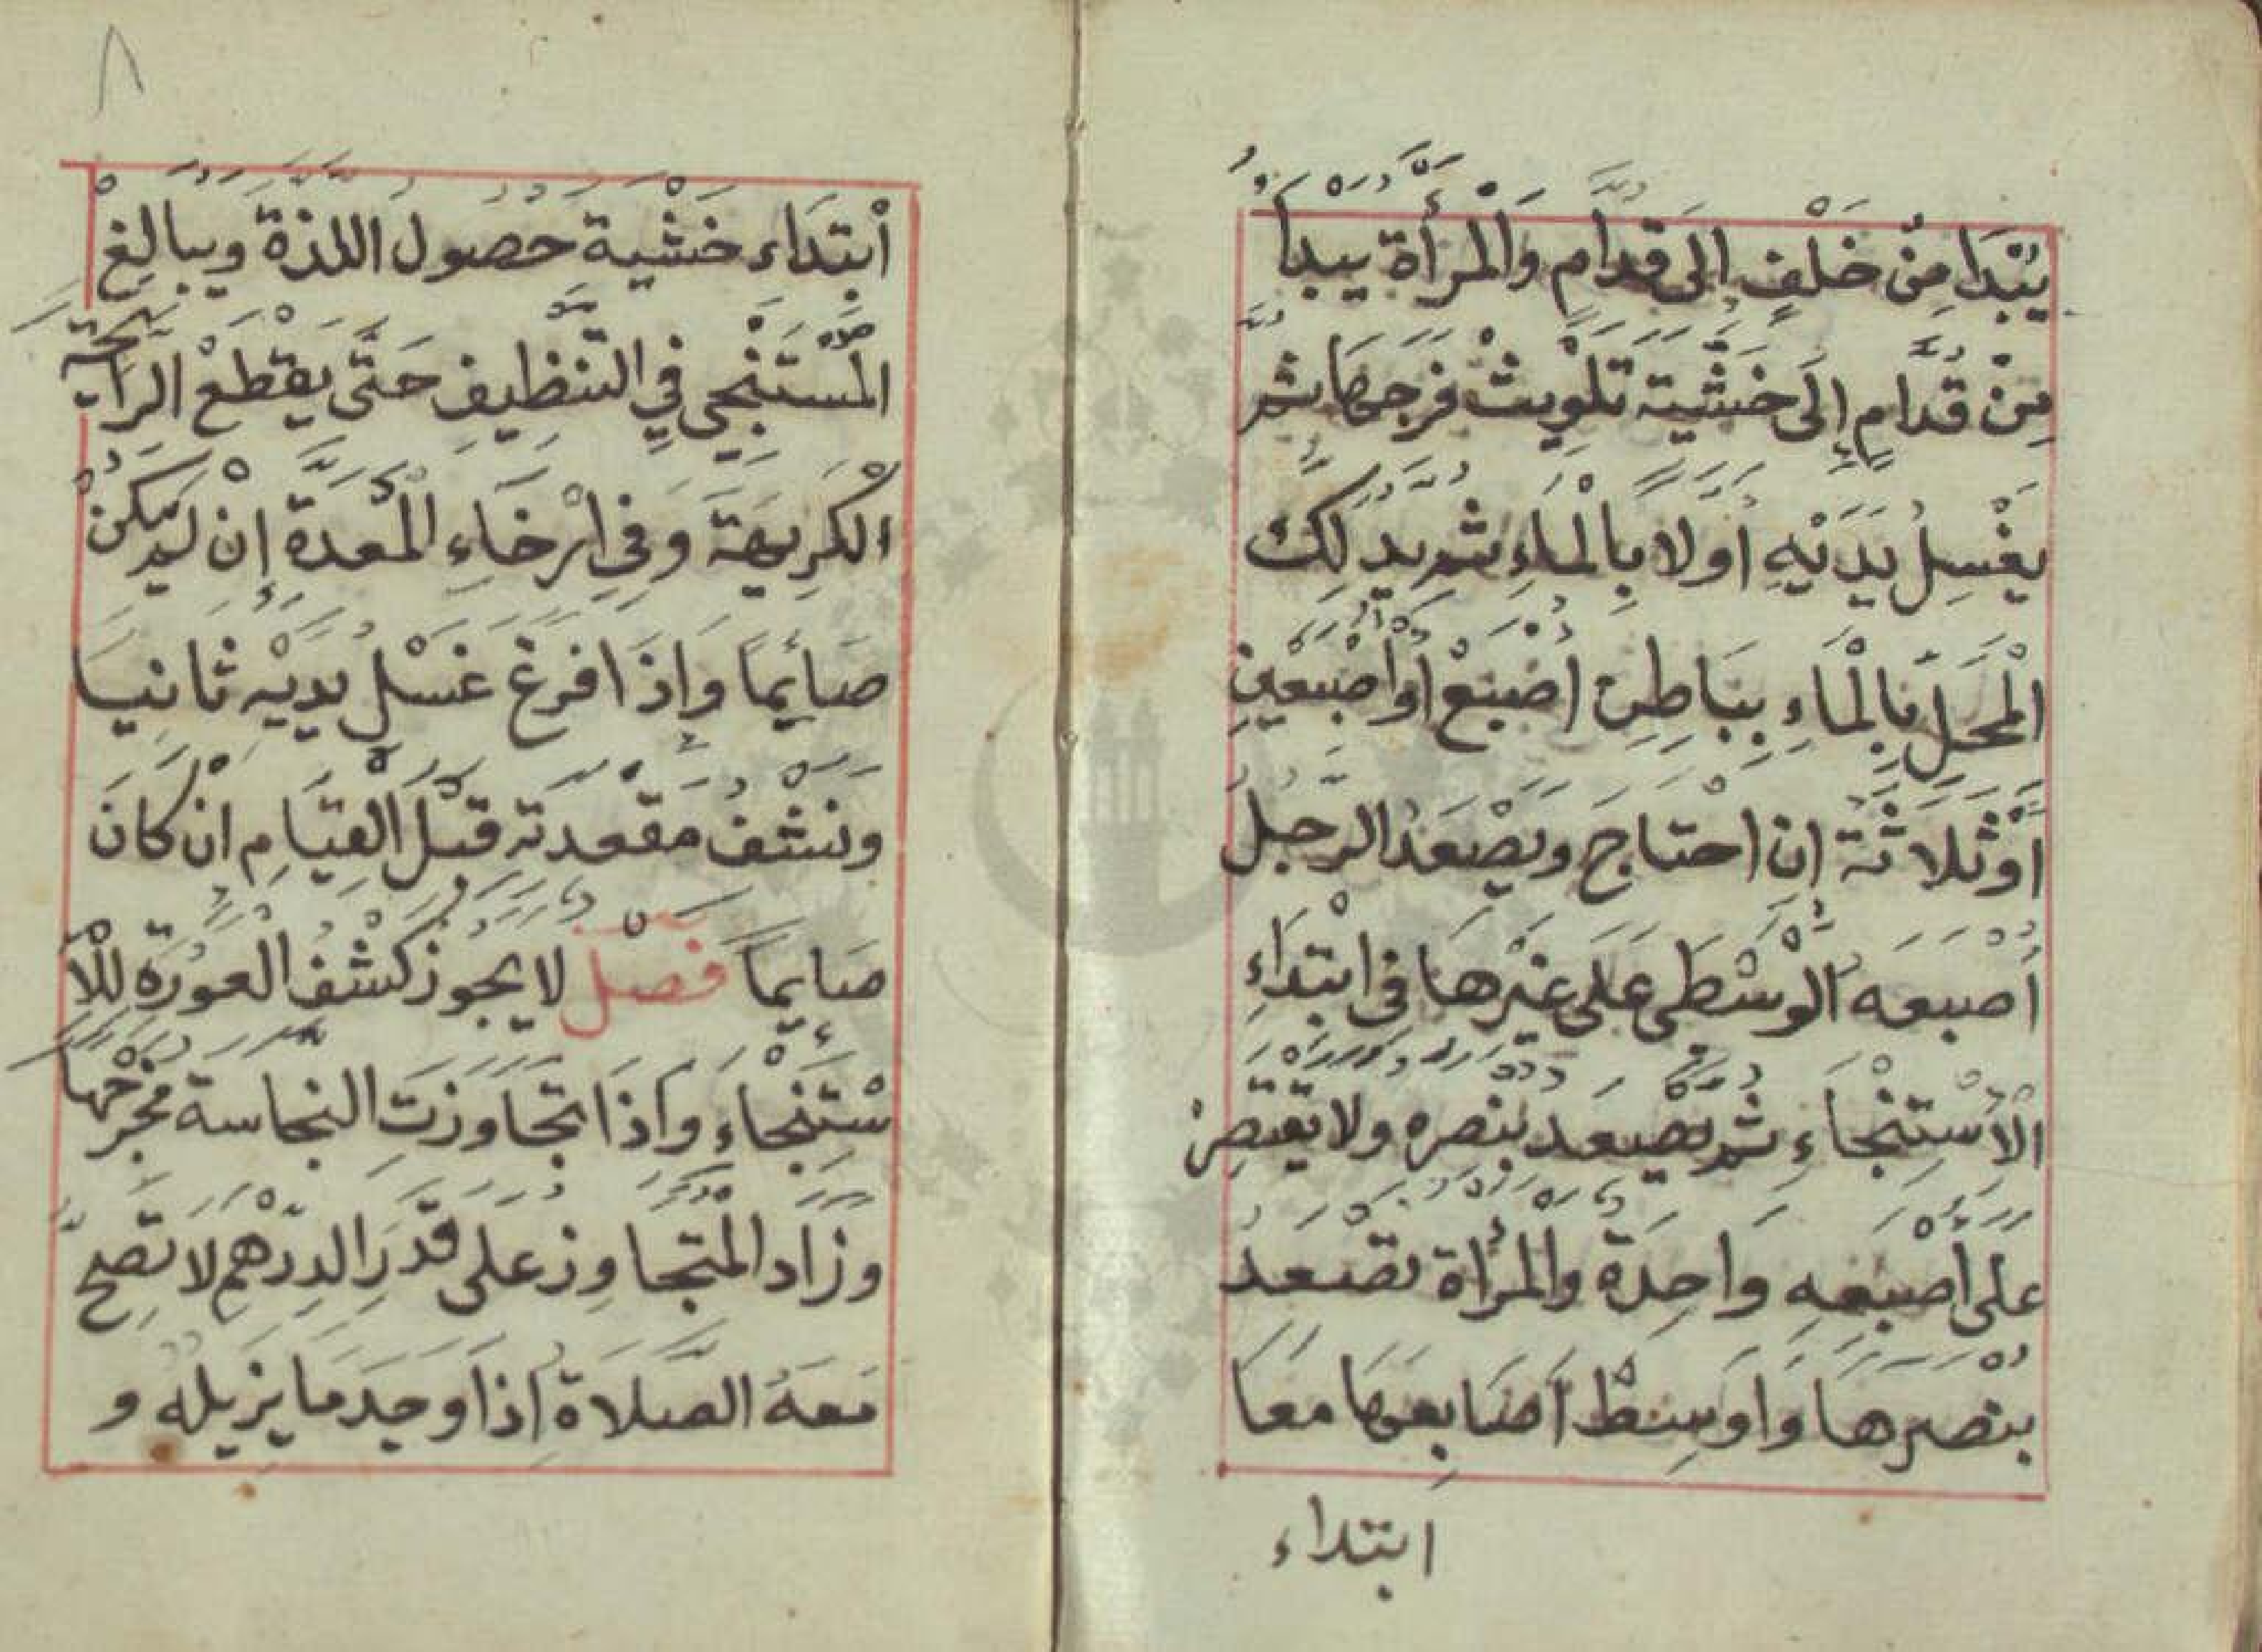 يبْدَا مِنْ خَلْفٍ إلى قدَّامٍ وَالْمَرأَة يبدأ
مِنْ قُدَّامٍ إِلَى خَشْيَة تَلْوِيثْ فَرَجهَا ثم
يغْسِلُ يَدَيْهِ أوّلا بِالْمَاءِ ثم يَدلك
الْمَحَلّ بِالْمَاءِ بِبَاطِنِ أصْبَعْ أوْ أصْبَعَيْنِ
أوْ ثَلَاثَة إن احْتاجَ ويصْعَدُ الرّجلُ
أصْبعه الْوسْطَى عَلَى غَيْرهَا في ابْتِدَاءِ
الْاسْتِنْجَاءِ ثُمَّ يصْعدُ بنصره ولا يقْتصِرْ
عَلَى أصْبعِهِ وَاحِدَة والمْرأة تصْعَدُ
بنْصرهَا وَاوَسِطْ أصَابِعهَا معَا
ابتداء
٨
أبْتِدَاءِ خَشْيَة حُصُول اللذة ويبَالِغْ
المُسْتَنْجِي فِي التَّنْظِيفِ حَتَّى يقْطَعْ الرَّايحة
الْكَرِيهَةَ وَفِي ارْخَاءِ الْمَعْدَةِ إنْ لم يَكنْ
صَائِمًا وَإِذَا فَرغ غَسَل يَدَيْهِ ثَانِيَا
وَنشْفُ مَقْعَدَته قَبْلَ الْقِيَامِ انْ كَانَ
صَايمًا فصْل لا يجُوز كَشْفُ الْعَوْرَة للْا
سْتِنْجَاءِ وَإِذَا تجَاوَزَتِ النجَاسة مَخْرَجَهَا
وزَاد الْمُتجَاوِز عَلى قَدْرِ الدِرْهَمْ لَا تَصِحُّ
مَعَهُ الصَّلَاةُ إذَا وَجدَ مَا يزيلهُ و